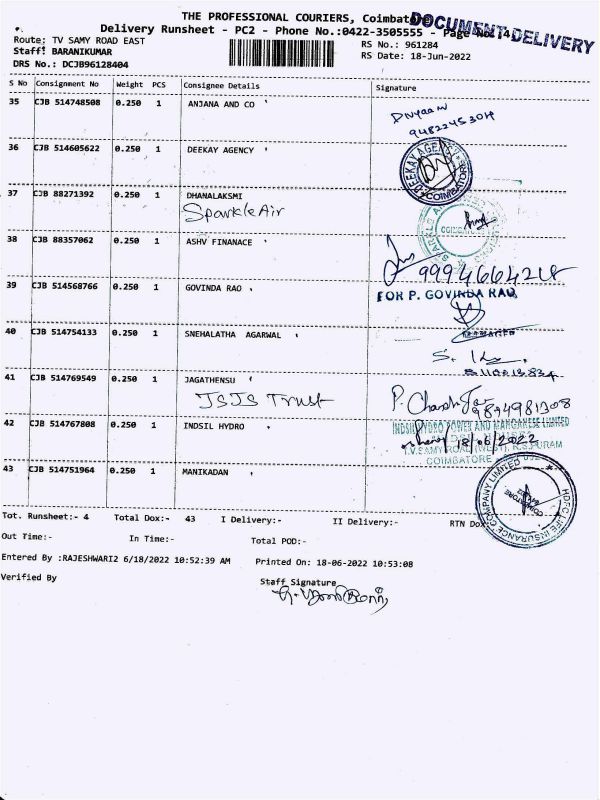 THE PROFESSIONAL COURIERS, Coimbatore
DOCUMENT DELIVERY
Delivery Runsheet - PC2 - Phone No.:0422-3505555 - Page No:4
Route: TV SAMY ROAD EAST
RS No.: 961284
Staff: BARANIKUMAR
RS Date: 18-Jun-2022
DRS No.: DCJB96128404
S No Consignment No Weight PCS Consignee Details Signature
35 CJB 514748508 0.250 1 ANJANA AND CO
36 CJB 514605622 0.250 1 DEEKAY AGENCY
DEEKAY AGENCY
COIMBATORE
37 CJB 88271392 0.250 1 DHANALAKSMI
Sparkle Air
38 CJB 88357062 0.250 1 ASHV FINANACE
39 CJB 514568766 0.250 1 GOVINDA RAO
FOR P. GOVINDA RAO
40 CJB 514754133 0.250 1 SNEHALATHA AGARWAL
MANAGER
41 CJB 514769549 0.250 1 JAGATHENSU
JSJS Trust
42 CJB 514767808 0.250 1 INDSIL HYDRO
INDSIL HYDRO POWER AND MANGANESE LIMITED
18/06/2022
T.V.SAMY ROAD (WEST), R.S.PURAM
COIMBATORE
43 CJB 514751964 0.250 1 MANIKADAN
HDFC LIFE INSURANCE COMPANY LIMITED
COIMBATORE
Tot. Runsheet:- 4 Total Dox:- 43 I Delivery:- II Delivery:- RTN Dox
Out Time:- In Time:- Total POD:-
Entered By :RAJESHWARI2 6/18/2022 10:52:39 AM Printed On: 18-06-2022 10:53:08
Verified By
Staff Signature